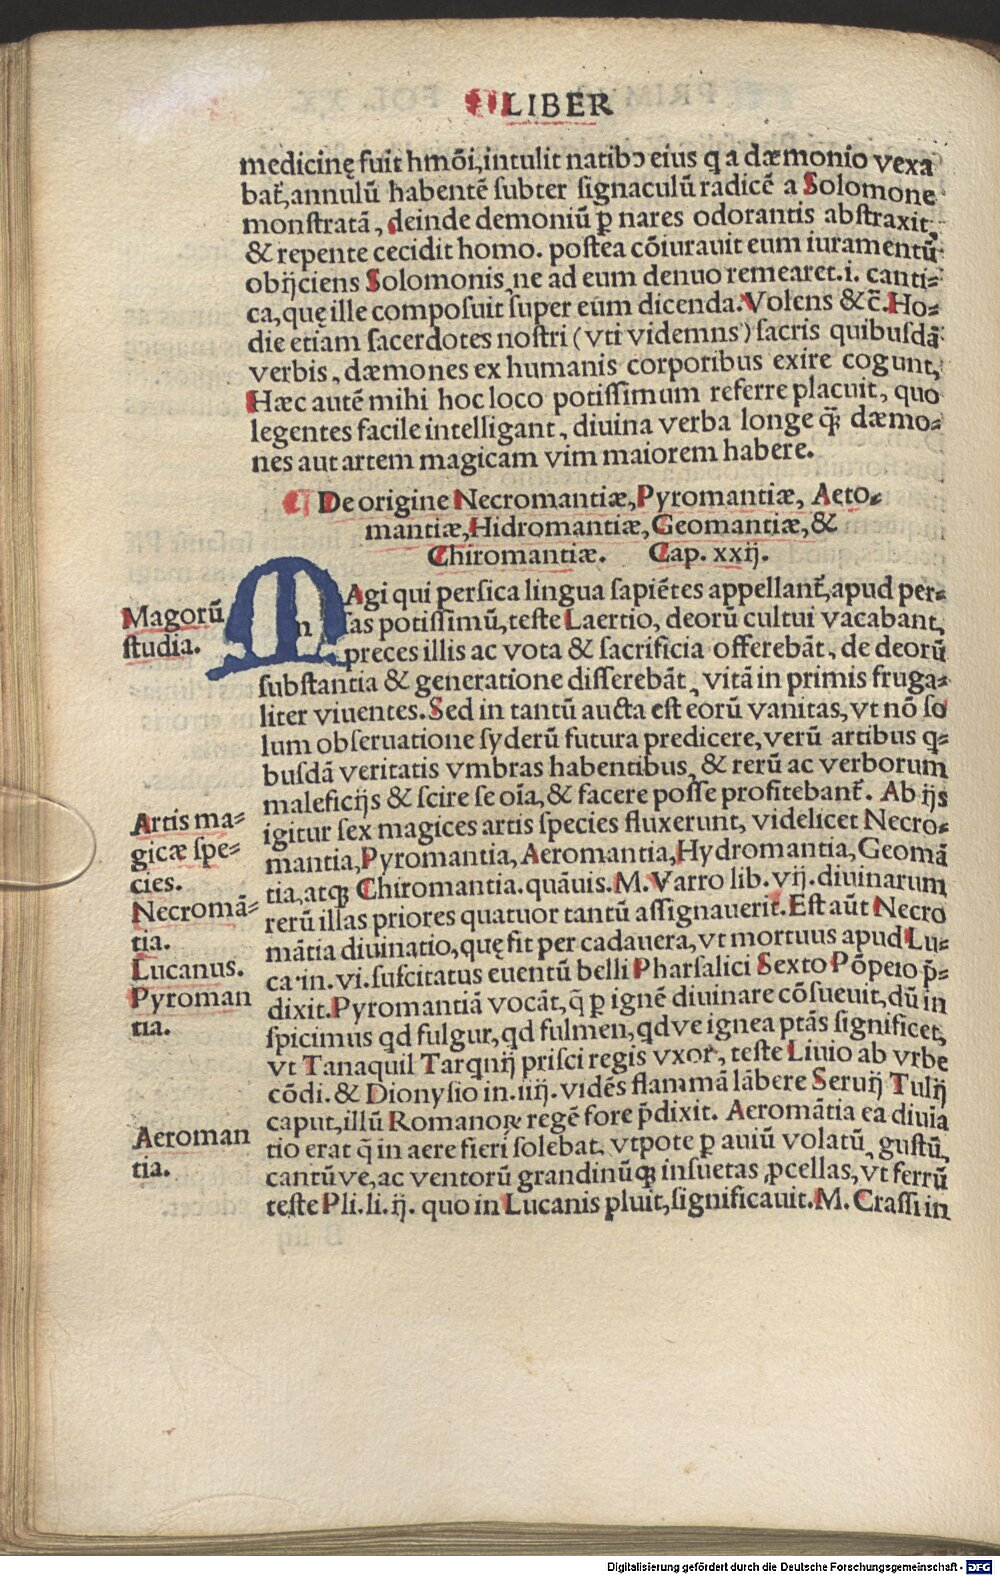 LIBER
medicinę fuit hmōi, intulit natibꝰ eius q a dæmonio vexa
bat᷑, annulū habentē ſubter ſignaculū radicē a Solomone
monſtratā, deinde demoniū ꝑ nares odorantis abſtraxit,
& repente cecidit homo. poſtea cōiurauit eum iuramentū
obijciens Solomonis, ne ad eum denuo remearet. i. canti⸗
ca, quę ille compoſuit ſuper eum dicenda. Volens &c̄. Ho⸗
die etiam ſacerdotes noſtri (vti videmns) ſacris quibuſdā
verbis, dæmones ex humanis corporibus exire cogunt,
Hæc autē mihi hoc loco potiſſimum referre placuit, quo
legentes facile intelligant, diuina verba longe q̄ȝ dæmo⸗
nes aut artem magicam vim maiorem habere.
¶ De origine Necromantiæ, Pyromantiæ, Aeto⸗
mantiæ, Hidromantiæ, Geomantiæ, &
Chiromantiæ. Cap. xxij.
Magorū
ſtudia.
MAgi qui perſica lingua ſapiētes appellant᷑, apud per⸗
ſas potiſſimū, teſte Laertio, deorū cultui vacabant,
preces illis ac vota & ſacrificia offerebāt, de deorū
ſubſtantia & generatione diſſerebāt, vitā in primis fruga⸗
liter viuentes. Sed in tantū aucta eſt eorū vanitas, vt nō ſo
lum obſeruatione ſyderū futura predicere, verū artibus q⸗
buſdā veritatis vmbras habentibus, & rerū ac verborum
maleficijs & ſcire ſe oīa, & facere poſſe profitebant᷑. Ab ijs
Artis ma⸗
gicæ ſpe⸗
cies.
igitur ſex magices artis ſpecies fluxerunt, videlicet Necro⸗
mantia, Pyromantia, Aeromantia, Hydromantia, Geomā
tia, atqꝫ Chiromantia. quāuis. M. Varro lib. vij. diuinarum
Necromā⸗
tia.
Lucanus.
Pyroman
tia.
rerū illas priores quatuor tantū aſſignauerit. Eſt aūt Necro
mātia diuinatio, quę fit per cadauera, vt mortuus apud Lu⸗
ca. in. vi. ſuſcitatus euentū belli Pharſalici Sexto Pōpeio p̄⸗
dixit. Pyromantiā vocāt, q̄ ꝑ ignē diuinare cōſueuit, dū in
ſpicimus qd fulgur, qd fulmen, qdve ignea ptās ſignificet,
vt Tanaquil Tarqnij priſci regis vxor, teſte Liuio ab vrbe
cōdi. & Dionyſio in. iiij. vidēs flammā lābere Seruij Tulij
caput, illū Romanoꝝ regē fore p̄dixit. Aeromātia ea diuīa
Aeroman
tia.
tio erat q̄ in aere fieri ſolebat, vtpote ꝑ auiū volatū, guſtū,
cantūve, ac ventorū grandinūqꝫ inſuetas ꝓcellas, vt ferrū
teſte Pli. li. ij. quo in Lucanis pluit, ſignificauit. M. Craſſi in
Digitalisierung gefördert durch die Deutsche Forschungsgemeinschaft - DFG